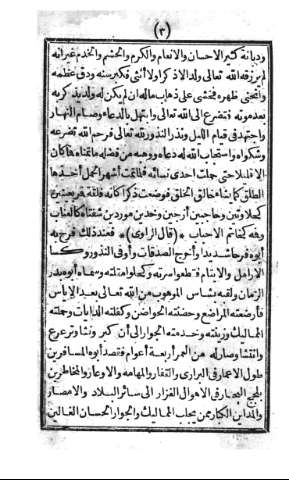 (٣)
وديانة كثير الاحسان والانعام والكرم والحشم والخدم غير انه
لم يرزقه الله تعالى ولدا لا ذكرا ولا أنثى فكبر سنه ودق عظمه
وانحنى ظهره فخشى على ذهاب ماله ان لم يكن له ولد يذكر به
بعد موته فتضرع الى الله تعالى وابتهل بالدعاء وصام النهار
واجتهد فى قيام الليل ونذر النذور لله تعالى فرحم الله تضرعه
وشكواه واستجاب الله له دعاه ووهبه من فضله ما تمناه فما كان
الا قليلا حتى حملت احدى نسائه فلما تمت أشهر الحمل أخذها
الطلق كما يشاء خالق الخلق فوضعت ذكرا كانه فلقة قمر بعينين
كحلاوتين وحاجبين أزجين وخدين موردين شفتاه كالعناب
وفمه كخاتم الاحباب * (قال الراوى) * فعند ذلك فرح به
أبوه فرحا شديدا وأخرج الصدقات وأوفى النذور وكسا
الارامل والايتام وقطعوا سرته وكحلوا مقلته وسماه أبوه بدر
الزمان ولقبه بشاس الموهوب من الله تعالى بعد الاياس
فأرضعته المراضع وحضنته الحواضن وكفلته الدايات وحملته
المماليك وزينته وخدمته الجوار الى أن كبر ونشا وترعرع
وانتشا وصار له من العمر أربعة أعوام فقصد أبوه المسافرين
طول الاعمار فى البرارى والقفار والمهامه والاوعار والمخاطرين
بلجج البحار فى الاهوال الغزار الى سائر البلاد والامصار
والمداين الكبار ممن يجلب المماليك والجوار الحسان الغالين